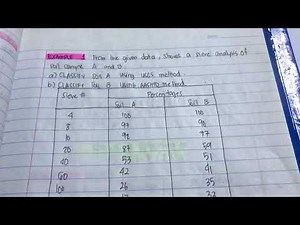 Example 1 From the given data, shows a sieve analysis of
soil sample A and B
a) CLASSIFY soil A using USCS method.
b) CLASSIFY soil B using AASHTO method
Sieve # Percentages
Soil A Soil B
4 100 100
8 97
10 92 77
20 87 59
40 53 51
60 42 41
100 26 35
17 33